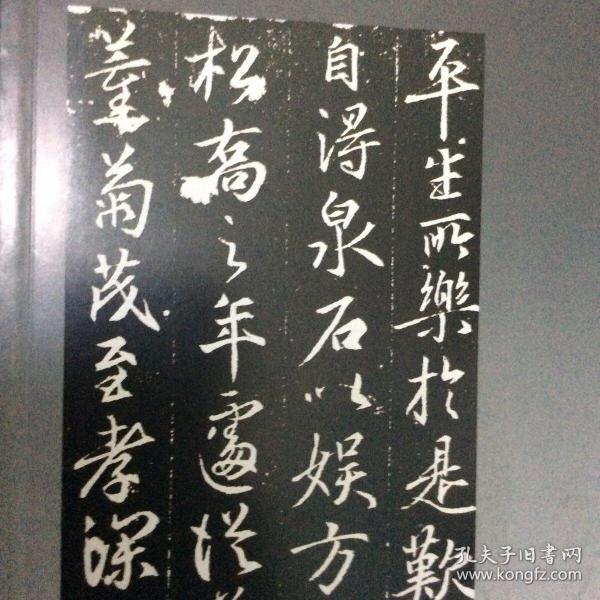 平生所樂於是歎
自得泉石以娛方
松喬之年遽從
菊茂至孝深
孔夫子旧書网
www.kongfz.com